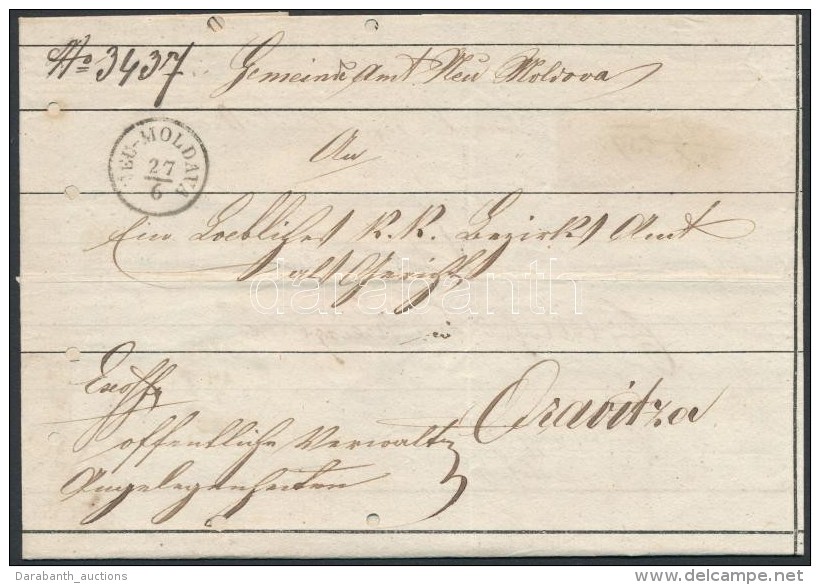 No 3437 Gemeinde Amt Neu Moldova
NEU-MOLDAVA
27
6
An
Ein Loebliches K. K. Bezirks Amt
als Gericht
in
Exoffo
Oravitza
öffentliche Verwalt
Angelegenheiten
darabanth
Darabanth_auctions
delcampe.net